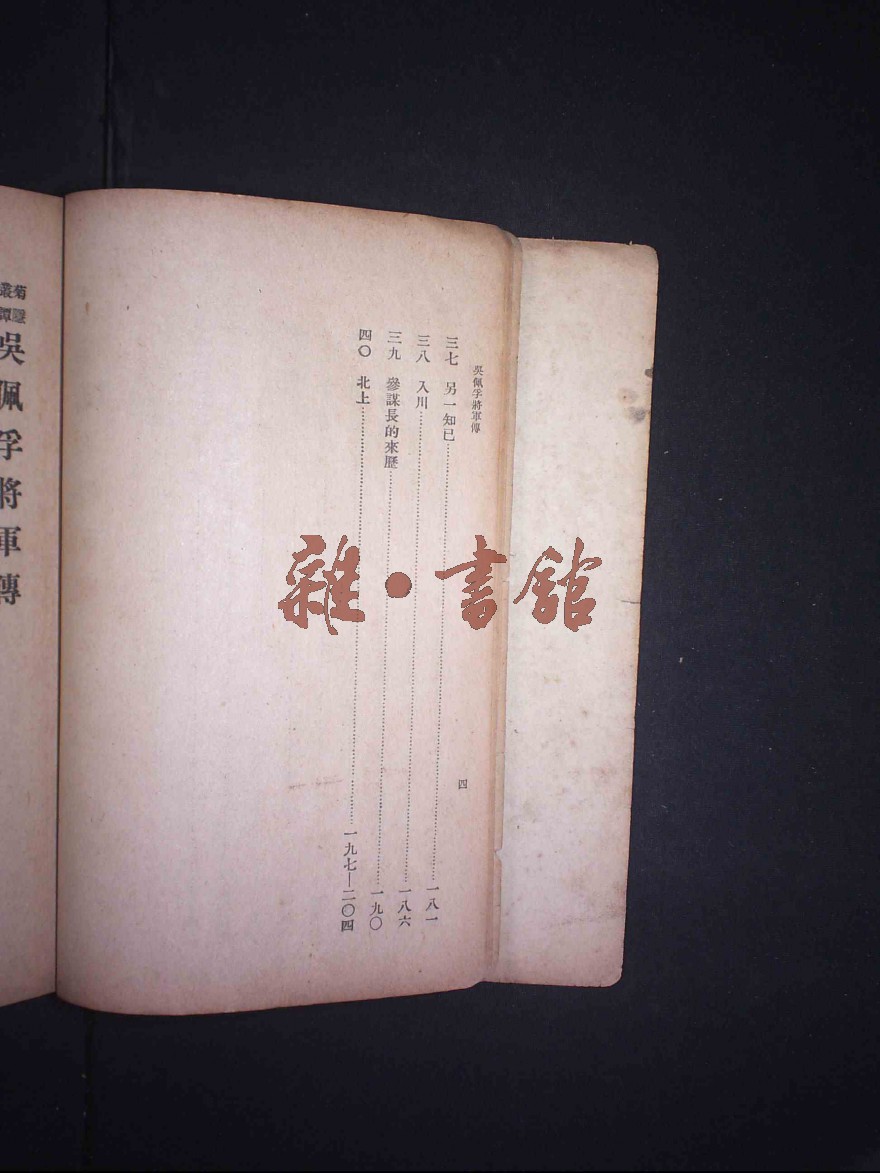 吳佩孚將軍傳
三七 另一知已……一八一
三八 入川……一八六
三九 參謀長的來歷……一九〇
四〇 北上……一九七—二〇四
四
菊隱
叢譚
吳佩孚將軍傳
雜·書館